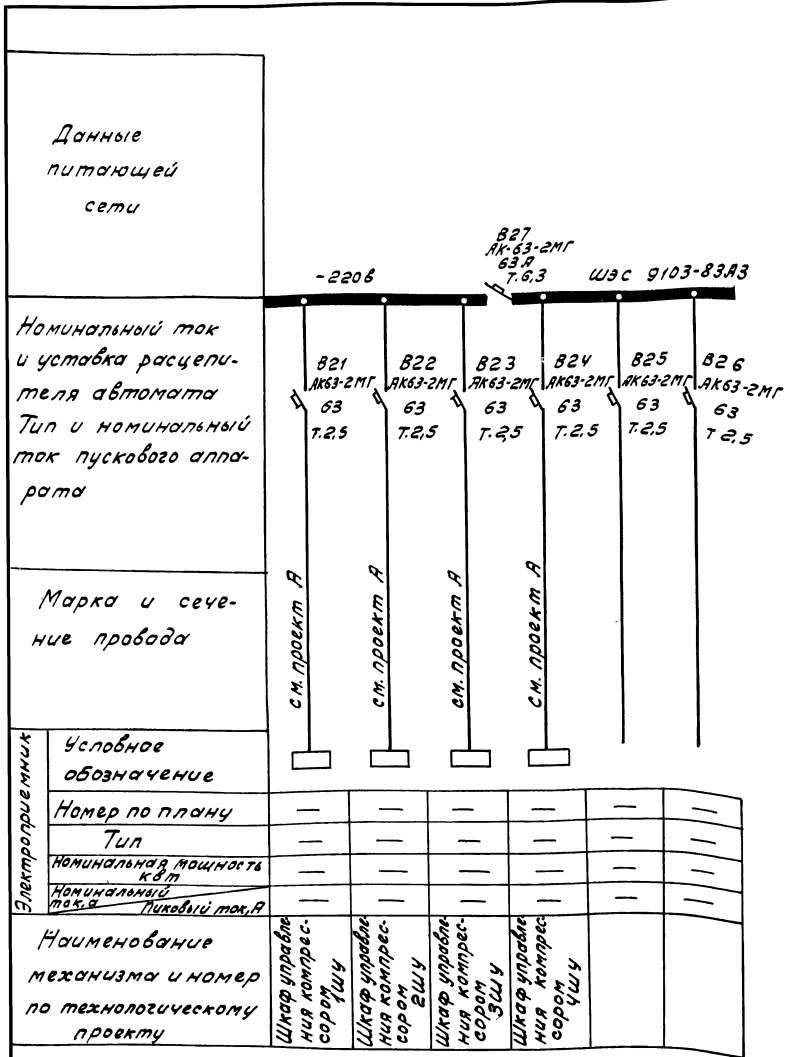 Данные
питающей
сети
-220в
В27
АК-63-2МГ
63А
Т.6,3
ШЭС 9103-83А3
Номинальный ток
и уставка расцепи-
теля автомата
Тип и номинальный
ток пускового аппа-
рата
В21
АК63-2МГ
63
Т.2,5
В22
АК63-2МГ
63
Т.2,5
В23
АК63-2МГ
63
Т.2,5
В24
АК63-2МГ
63
Т.2,5
В25
АК63-2МГ
63
Т.2,5
В26
АК63-2МГ
63
Т 2,5
Марка и сече-
ние провода
см. проект А
см. проект А
см. проект А
см. проект А
Электроприемник
Условное
обозначение
Номер по плану
— — — — — —
Тип
— — — — — —
Номинальная мощность
квт
— — — — — —
Номинальный
ток,а
Пиковый ток,А
— — — — — —
Наименование
механизма и номер
по технологическому
проекту
Шкаф управле-
ния компрес-
сором 1ШУ
Шкаф управле-
ния компрес-
сором 2ШУ
Шкаф управле-
ния компрес-
сором 3ШУ
Шкаф управле-
ния компрес-
сором 4ШУ